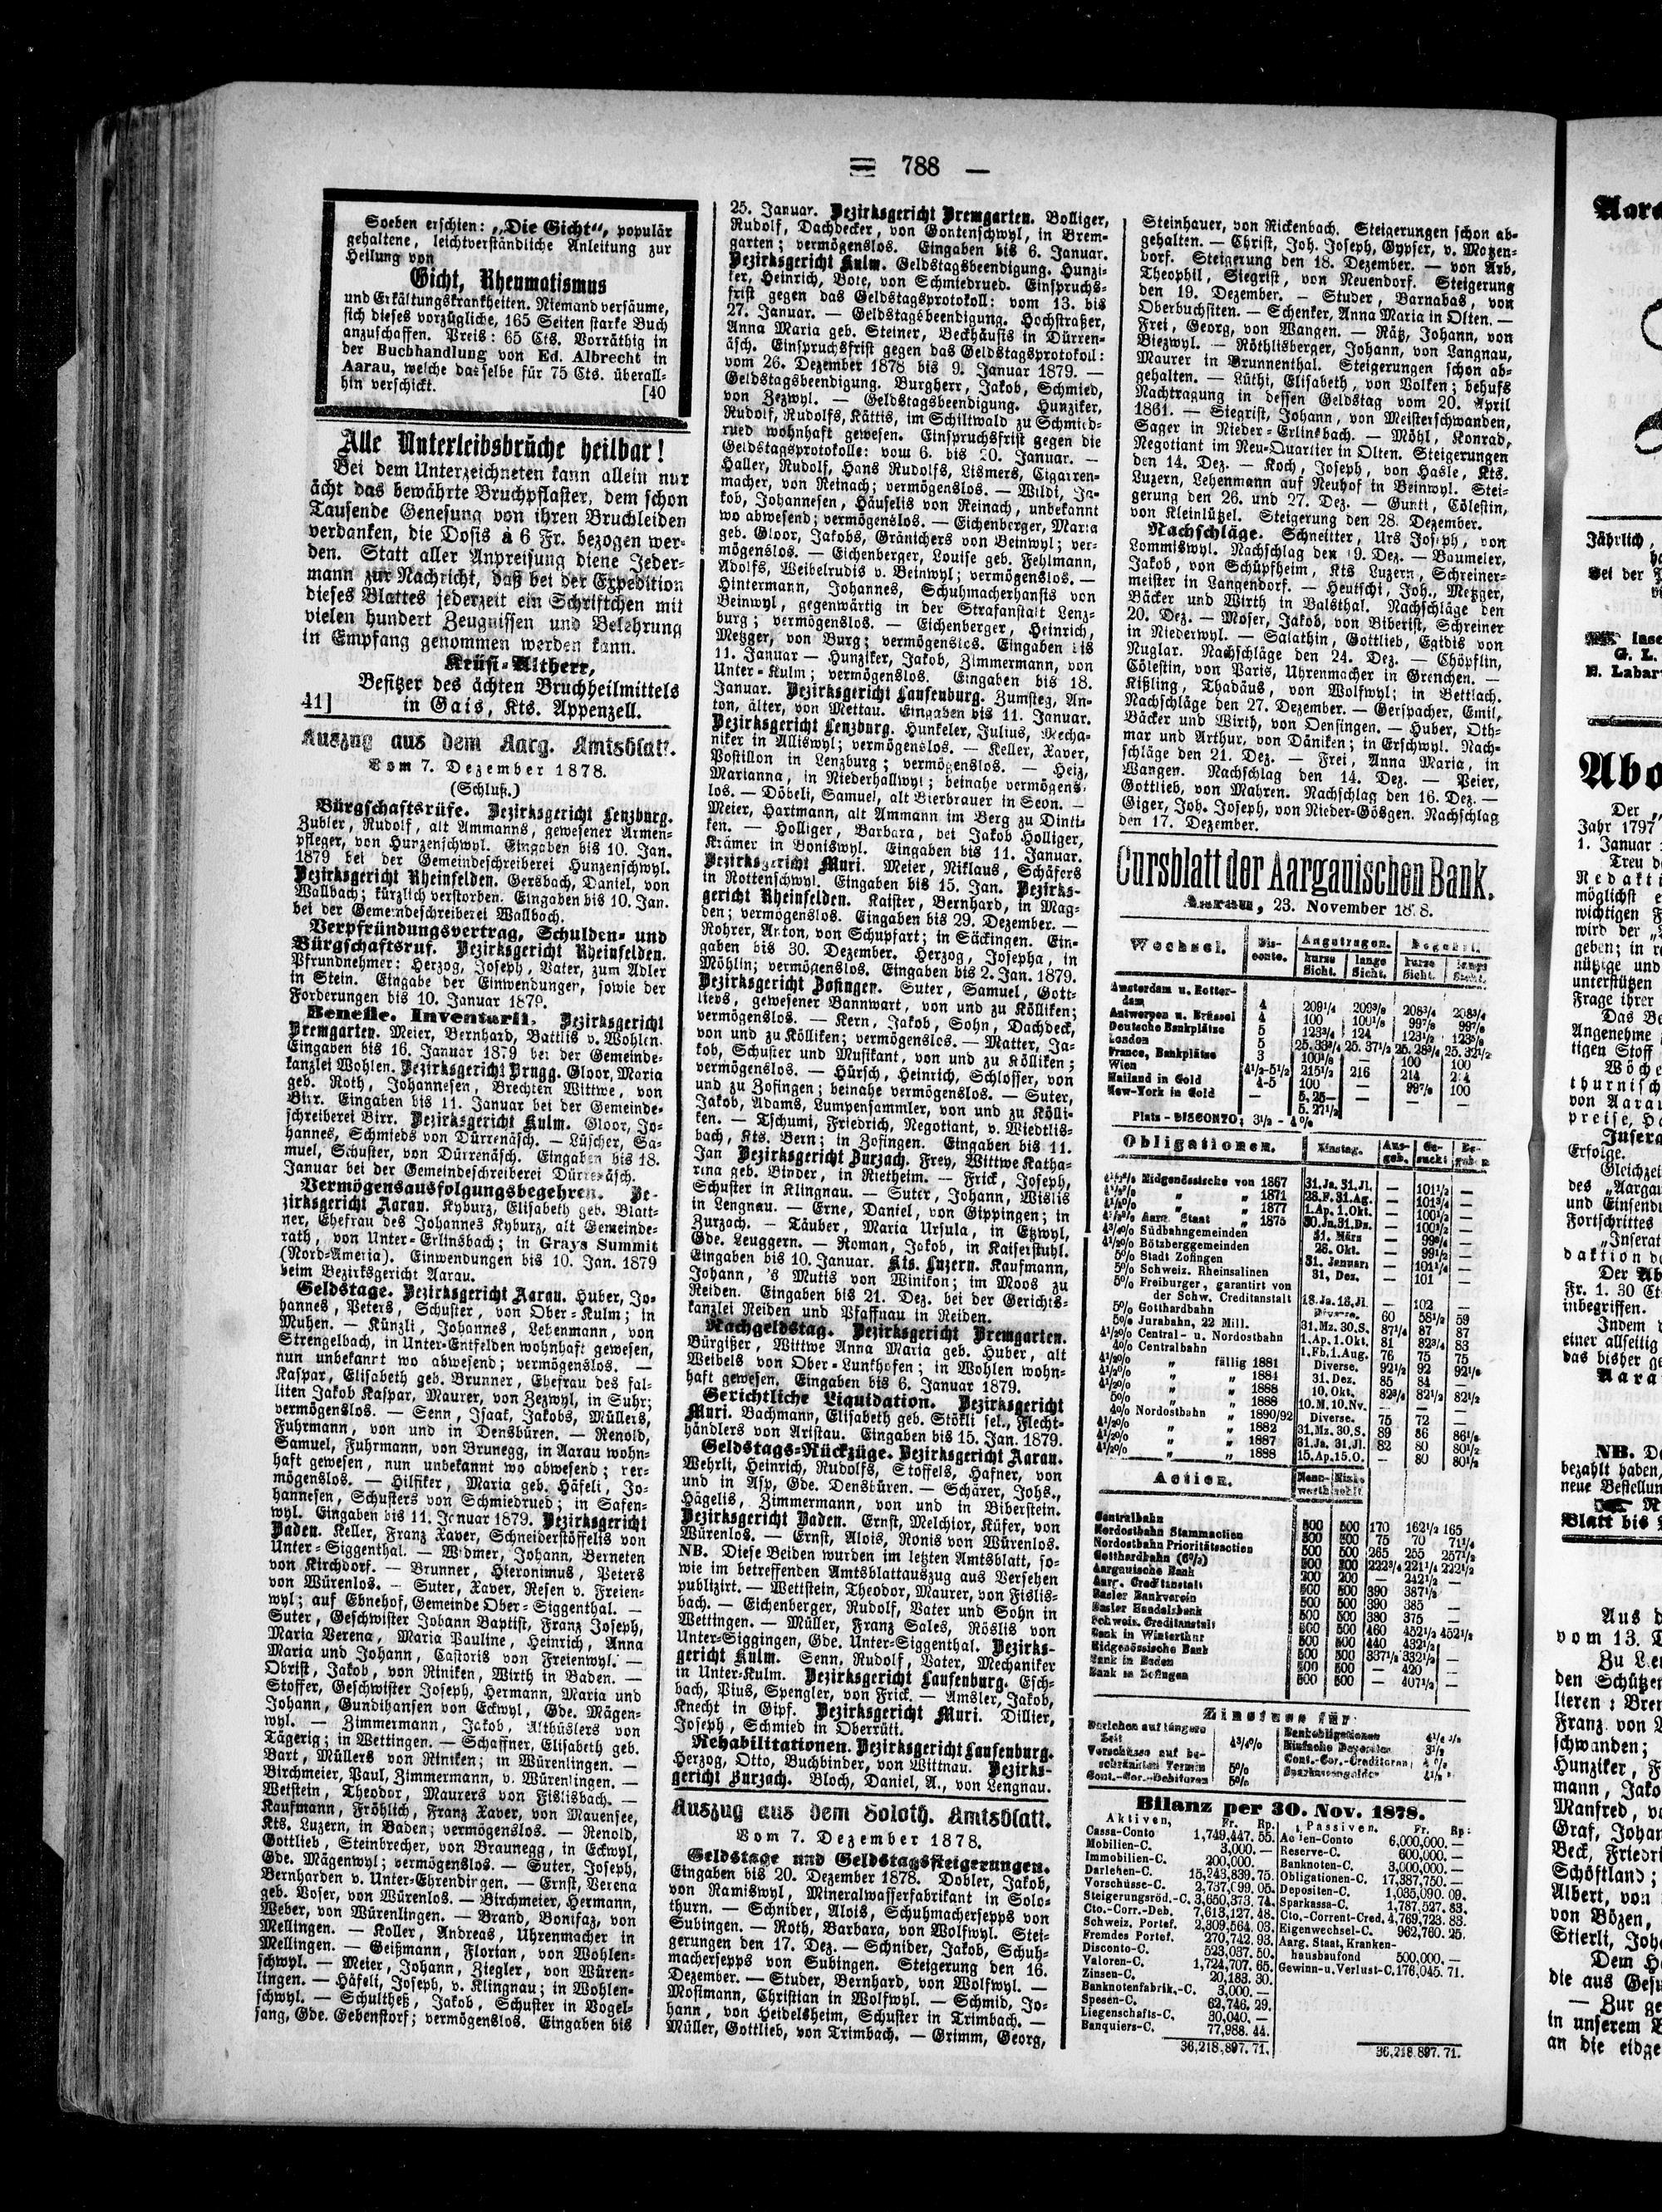 — 788 —
Soeben erschien: „Die Gicht“, populär
gehaltene, leichtverständliche Anleitung zur
Heilung von
Gicht, Rheumatismus
und Erkältungskrankheiten. Niemand versäume,
sich dieses vorzügliche, 165 Seiten starke Buch
anzuschaffen. Preis: 65 Cts. Vorräthig in
der Buchhandlung von Ed. Albrecht in
Aarau, welche dasselbe für 75 Cts. überall-
hin verschickt. [40
Alle Unterleibsbrüche heilbar!
Bei dem Unterzeichneten kann allein nur
ächt das bewährte Bruchpflaster, dem schon
Tausende Genesung von ihren Bruchleiden
verdanken, die Dosis à 6 Fr. bezogen wer-
den. Statt aller Anpreisung diene Jeder-
mann zur Nachricht, daß bei der Expedition
dieses Blattes jederzeit ein Schriftchen mit
vielen hundert Zeugnissen und Belehrung
in Empfang genommen werden kann.
Krüsi-Altherr,
Besitzer des ächten Bruchheilmittels
41] in Gais, Kts. Appenzell.
Auszug aus dem Aarg. Amtsblatt.
Vom 7. Dezember 1878.
(Schluß.)
Bürgschaftsrüfe. Bezirksgericht Lenzburg.
Zubler, Rudolf, alt Ammanns, gewesener Armen-
pfleger, von Hunzenschwyl. Eingaben bis 10. Jan.
1879 bei der Gemeindeschreiberei Hunzenschwyl.
Bezirksgericht Rheinfelden. Gersbach, Daniel, von
Wallbach; kürzlich verstorben. Eingaben bis 10. Jan.
bei der Gemeindeschreiberei Wallbach.
Verpfründungsvertrag, Schulden- und
Bürgschaftsruf. Bezirksgericht Rheinfelden.
Pfrundnehmer: Herzog, Joseph, Vater, zum Adler
in Stein. Eingabe der Einwendungen, sowie der
Forderungen bis 10. Januar 1879.
Benefic. Inventarii. Bezirksgericht
Bremgarten. Meier, Bernhard, Battlis v. Wohlen.
Eingaben bis 16. Januar 1879 bei der Gemeinde-
kanzlei Wohlen. Bezirksgericht Brugg. Gloor, Maria
geb. Roth, Johannesen, Brechten Wittwe, von
Birr. Eingaben bis 11. Januar bei der Gemeinde-
schreiberei Birr. Bezirksgericht Kulm. Gloor, Jo-
hannes, Schmieds von Dürrenäsch. — Lüscher, Sa-
muel, Schuster, von Dürrenäsch. Eingaben bis 18.
Januar bei der Gemeindeschreiberei Dürrenäsch.
Vermögensausfolgungsbegehren. Be-
zirksgericht Aarau. Kyburz, Elisabeth geb. Blatt-
ner, Ehefrau des Johannes Kyburz, alt Gemeinde-
rath, von Unter-Erlinsbach; in Grays Summit
(Nord-Ameria). Einwendungen bis 10. Jan. 1879
beim Bezirksgericht Aarau.
Geldstage. Bezirksgericht Aarau. Huber, Jo-
hannes, Peters, Schuster, von Ober-Kulm; in
Muhen. — Künzli, Johannes, Lehenmann, von
Strengelbach, in Unter-Entfelden wohnhaft gewesen,
nun unbekannt wo abwesend; vermögenslos. —
Kaspar, Elisabeth geb. Brunner, Ehefrau des fal-
liten Jakob Kaspar, Maurer, von Zezwyl, in Suhr;
vermögenslos. — Senn, Isaak, Jakobs, Müllers,
Fuhrmann, von und in Densbüren. — Renold,
Samuel, Fuhrmann, von Brunegg, in Aarau wohn-
haft gewesen, nun unbekannt wo abwesend; ver-
mögenslos. — Hilfiker, Maria geb. Häfeli, Jo-
hannesen, Schusters von Schmiedrued; in Safen-
wyl. Eingaben bis 11. Januar 1879. Bezirksgericht
Baden. Keller, Franz Xaver, Schneiderstöffelis von
Unter-Siggenthal. — Widmer, Johann, Berneten
von Kirchdorf. — Brunner, Hieronimus, Peters
von Würenlos. — Suter, Xaver, Resen v. Freien-
wyl; auf Ebnehof, Gemeinde Ober-Siggenthal. —
Suter, Geschwister Johann Baptist, Franz Joseph,
Maria Verena, Maria Pauline, Heinrich, Anna
Maria und Johann, Castoris von Freienwyl. —
Obrist, Jakob, von Riniken, Wirth in Baden. —
Stoffer, Geschwister Joseph, Hermann, Maria und
Johann, Gundihansen von Eckwyl, Gde. Mägen-
wyl. — Zimmermann, Jakob, Altbüslers von
Tägerig; in Wettingen. — Schaffner, Elisabeth geb.
Bart, Müllers von Riniken; in Würenlingen. —
Birchmeier, Paul, Zimmermann, v. Würenlingen. —
Wetstein, Theodor, Maurers von Fislisbach. —
Kaufmann, Fröhlich, Franz Xaver, von Mauensee,
Kts. Luzern, in Baden; vermögenslos. — Renold,
Gottlieb, Steinbrecher, von Braunegg, in Eckwyl,
Gde. Mägenwyl; vermögenslos. — Suter, Joseph,
Bernharden v. Unter-Ehrendingen. — Ernst, Verena
geb. Voser, von Würenlos. — Birchmeier, Hermann,
Weber, von Würenlingen. — Brand, Bonifaz, von
Mellingen. — Koller, Andreas, Uhrenmacher in
Mellingen. — Geißmann, Florian, von Wohlen-
schwyl. — Meier, Johann, Ziegler, von Würen-
lingen. — Häfeli, Joseph, v. Klingnau; in Wohlen-
schwyl. — Schultheß, Jakob, Schuster in Vogel-
sang, Gde. Gebenstorf; vermögenslos. Eingaben bis
25. Januar. Bezirksgericht Bremgarten. Bolliger,
Rudolf, Dachdecker, von Gontenschwyl, in Brem-
garten; vermögenslos. Eingaben bis 6. Januar.
Bezirksgericht Kulm. Geldstagsbeendigung. Hunzi-
ker, Heinrich, Bote, von Schmiedrued. Einspruchs-
frist gegen das Geldstagsprotokoll: vom 13. bis
27. Januar. — Geldstagsbeendigung. Hochstraßer,
Anna Maria geb. Steiner, Beckhäusis in Dürren-
äsch. Einspruchsfrist gegen das Geldstagsprotokoll:
vom 26. Dezember 1878 bis 9. Januar 1879. —
Geldstagsbeendigung. Burgherr, Jakob, Schmied,
von Zezwyl. — Geldstagsbeendigung. Hunziker,
Rudolf, Rudolfs, Kättis, im Schiltwald zu Schmied-
rued wohnhaft gewesen. Einspruchsfrist gegen die
Geldstagsprotokolle: vom 6. bis 20. Januar. —
Haller, Rudolf, Hans Rudolfs, Lismers, Cigarren-
macher, von Reinach; vermögenslos. — Wildi, Ja-
kob, Johannesen, Häuselis von Reinach, unbekannt
wo abwesend; vermögenslos. — Eichenberger, Maria
geb. Gloor, Jakobs, Gränichers von Beinwyl; ver-
mögenslos. — Eichenberger, Louise geb. Fehlmann,
Adolfs, Weibelrudis v. Beinwyl; vermögenslos. —
Hintermann, Johannes, Schuhmacherhansis von
Beinwyl, gegenwärtig in der Strafanstalt Lenz-
burg; vermögenslos. — Eichenberger, Heinrich,
Metzger, von Burg; vermögenslos. Eingaben bis
11. Januar — Hunziker, Jakob, Zimmermann, von
Unter-Kulm; vermögenslos. Eingaben bis 18.
Januar. Bezirksgericht Laufenburg. Zumsteg, An-
ton, älter, von Mettau. Eingaben bis 11. Januar.
Bezirksgericht Lenzburg. Hunkeler, Julius, Mecha-
niker in Alliswyl; vermögenslos. — Keller, Xaver,
Postillon in Lenzburg; vermögenslos. — Heiz,
Marianna, in Niederhallwyl; beinahe vermögens-
los. — Döbeli, Samuel, alt Bierbrauer in Seon. —
Meier, Hartmann, alt Ammann im Berg zu Dinti-
ken. — Holliger, Barbara, bei Jakob Holliger,
Krämer in Boniswyl. Eingaben bis 11. Januar.
Bezirksgericht Muri. Meier, Niklaus, Schäfers
in Rottenschwyl. Eingaben bis 15. Jan. Bezirks-
gericht Rheinfelden. Kaister, Bernhard, in Mag-
den; vermögenslos. Eingaben bis 29. Dezember. —
Rohrer, Anton, von Schupfart; in Säckingen. Ein-
gaben bis 30. Dezember. Herzog, Josepha, in
Möhlin; vermögenslos. Eingaben bis 2. Jan. 1879.
Bezirksgericht Zofingen. Suter, Samuel, Gott-
liebs, gewesener Bannwart, von und zu Kölliken;
vermögenslos. — Kern, Jakob, Sohn, Dachdeck,
von und zu Kölliken; vermögenslos. — Matter, Ja-
kob, Schuster und Musikant, von und zu Kölliken;
vermögenslos. — Hürsch, Heinrich, Schlosser, von
und zu Zofingen; beinahe vermögenslos. — Suter,
Jakob, Adams, Lumpensammler, von und zu Kölli-
ken. — Tschumi, Friedrich, Negotiant, v. Wiedtlis-
bach, Kts. Bern; in Zofingen. Eingaben bis 11.
Jan Bezirksgericht Zurzach. Frey, Wittwe Katha-
rina geb. Binder, in Rietheim. — Frick, Joseph,
Schuster in Klingnau. — Suter, Johann, Wislis
in Lengnau. — Erne, Daniel, von Gippingen; in
Zurzach. — Täuber, Maria Ursula, in Etzwyl,
Gde. Leuggern. — Roman, Jakob, in Kaiserstuhl.
Eingaben bis 10. Januar. Kts. Luzern. Kaufmann,
Johann, 's Mutis von Winikon; im Moos zu
Reiden. Eingaben bis 21. Dez. bei der Gerichts-
kanzlei Reiden und Pfaffnau in Reiden.
Nachgeldstag. Bezirksgericht Bremgarten.
Bürgißer, Wittwe Anna Maria geb. Huber, alt
Weibels von Ober-Lunkhofen; in Wohlen wohn-
haft gewesen. Eingaben bis 6. Januar 1879.
Gerichtliche Liquidation. Bezirksgericht
Muri. Bachmann, Elisabeth geb. Stökli sel., Flecht-
händlers von Aristau. Eingaben bis 15. Jan. 1879.
Geldstags-Rückzüge. Bezirksgericht Aarau.
Wehrli, Heinrich, Rudolfs, Stoffels, Hafner, von
und in Asp, Gde. Densbüren. — Schärer, Johs.,
Hägelis, Zimmermann, von und in Biberstein.
Bezirksgericht Baden. Ernst, Melchior, Küfer, von
Würenlos. — Ernst, Alois, Ronis von Würenlos.
NB. Diese Beiden wurden im letzten Amtsblatt, so-
wie im betreffenden Amtsblattauszug aus Versehen
publizirt. — Wettstein, Theodor, Maurer, von Fislis-
bach. — Eichenberger, Rudolf, Vater und Sohn in
Wettingen. — Müller, Franz Sales, Röslis von
Unter-Siggingen, Gde. Unter-Siggenthal. Bezirks-
gericht Kulm. Senn, Rudolf, Vater, Mechaniker
in Unter-Kulm. Bezirksgericht Laufenburg. Esch-
bach, Pius, Spengler, von Frick. — Amsler, Jakob,
Knecht in Gipf. Bezirksgericht Muri. Dillier,
Joseph, Schmied in Oberrüti.
Rehabilitationen. Bezirksgericht Laufenburg.
Herzog, Otto, Buchbinder, von Wittnau. Bezirks-
gericht Zurzach. Bloch, Daniel, A., von Lengnau.
Auszug aus dem Soloth. Amtsblatt.
Vom 7. Dezember 1878.
Geldstage und Geldstagssteigerungen.
Eingaben bis 20. Dezember 1878. Dobler, Jakob,
von Ramiswyl, Mineralwasserfabrikant in Solo-
thurn. — Schnider, Alois, Schuhmachersepps von
Subingen. — Roth, Barbara, von Wolfwyl. Stei-
gerungen den 17. Dez. — Schnider, Jakob, Schuh-
machersepps von Subingen. Steigerung den 16.
Dezember. — Studer, Bernhard, von Wolfwyl. —
Mostmann, Christian in Wolfwyl. — Schmid, Jo-
hann, von Heidelsheim, Schuster in Trimbach. —
Müller, Gottlieb, von Trimbach. — Grimm, Georg,
Steinhauer, von Rickenbach. Steigerungen schon ab-
gehalten. — Christ, Joh. Joseph, Gypser, v. Matzen-
dorf. Steigerung den 18. Dezember. — von Arb,
Theophil, Siegrist, von Neuendorf. Steigerung
den 19. Dezember. — Studer, Barnabas, von
Oberbuchsiten. — Schenker, Anna Maria in Olten. —
Frei, Georg, von Wangen. — Rätz, Johann, von
Biezwyl. — Röthlisberger, Johann, von Langnau,
Maurer in Brunnenthal. Steigerungen schon ab-
gehalten. — Lüthi, Elisabeth, von Wolken; behufs
Nachtragung in dessen Geldstag vom 20. April
1861. — Siegrist, Johann, von Meisterschwanden,
Sager in Nieder-Erlinsbach. — Möhl, Konrad,
Negotiant im Neu-Quartier in Olten. Steigerungen
den 14. Dez. — Koch, Joseph, von Hasle, Kts.
Luzern, Lehenmann auf Neuhof in Beinwyl. Stei-
gerung den 26. und 27. Dez. — Gunti, Cölestin,
von Kleinlützel. Steigerung den 28. Dezember.
Nachschläge. Schneitter, Urs Joseph, von
Lommiswyl. Nachschlag den 19. Dez. — Baumeler,
Jakob, von Schüpfheim, Kts Luzern, Schreiner-
meister in Langendorf. — Heutschi, Joh., Metzger,
Bäcker und Wirth in Balsthal. Nachschläge den
20. Dez. — Moser, Jakob, von Biberist, Schreiner
in Niederwyl. — Salathin, Gottlieb, Egidis von
Nuglar. Nachschläge den 24. Dez. — Chöpflin,
Cölestin, von Paris, Uhrenmacher in Grenchen. —
Kißling, Thadäus, von Wolfwyl; in Bettlach.
Nachschläge den 27. Dezember. — Gerspacher, Emil,
Bäcker und Wirth, von Oensingen. — Huber, Oth-
mar und Arthur, von Däniken; in Erschwyl. Nach-
schläge den 21. Dez. — Frei, Anna Maria, in
Wangen. Nachschlag den 14. Dez. — Peier,
Gottlieb, von Mahren. Nachschlag den 16. Dez. —
Giger, Joh. Joseph, von Nieder-Gösgen. Nachschlag
den 17. Dezember.
Cursblatt der Aargauischen Bank.
Aarau, 23. November 1878.
Wechsel. Dis-conto. Angetragen. Begehrt.
kurze Sicht. lange Sicht. kurze Sicht. lange Sicht.
Amsterdam u. Rotter-
dam 4 209 1/4 209 3/8 208 3/4 208 3/4
Antwerpen u. Brüssel 4 100 100 1/8 99 7/8 99 7/8
Deutsche Bankplätze 5 123 3/4 124 123 1/2 123 5/8
London 5 25.33 3/4 25.37 1/2 25.28 3/4 25.32 1/2
France, Bankplätze 3 100 1/8 — 100 100
Wien 4 1/2-5 1/2 215 1/2 216 214 214
Mailand in Gold 4-5 100 — 99 7/8 100
New-York in Gold — 5.25— — — —
5.27 1/2
Platz-DISCONTO; 3 1/2 - 4 %
Obligationen. Zinstag. Aus-geb. Ge-sucht Be-geben
4 1/2 % Eidgenössische von 1867 31.Ja.31.Jl. — 101 1/2 —
4 1/2 % „ „ 1871 28.F.31.Ag. — 101 3/4 —
4 1/2 % „ „ 1877 1.Ap.1.Okt. — 101 1/2 —
4 1/2 % Aarg. Staat „ 1875 30.Jn.31.Dz. — 100 1/2 —
4 3/4 % Südbahngemeinden 31. März — 99 3/4 —
4 1/2 % Bötzberggemeinden 26. Okt. — 99 1/2 —
5 % Stadt Zofingen 31. Januar — 101 1/4 —
5 % Schweiz. Rheinsalinen 31. Dez. — 101 —
5 % Freiburger, garantirt von
der Schw. Creditanstalt 18.Ja.18.Jl. — 102 —
5 % Gotthardbahn Diverse. 60 58 1/2 59
5 % Jurabahn, 22 Mill. 31.Mz.30.S. 87 1/4 87 87
4 1/2 % Central- u. Nordostbahn 1.Ap.1.Okt. 81 82 3/4 83
4 % Centralbahn 1.Fb.1.Aug. 76 75 75
4 1/2 % „ fällig 1881 Diverse. 92 1/2 92 92 1/8
4 1/2 % „ „ 1884 31. Dez. 85 84 —
4 1/2 % „ „ 1888 10. Okt. 82 3/4 82 1/2 82 1/2
5 % „ „ 1888 10.M.10.Nv. — — —
4 % Nordostbahn „ 1890/92 Diverse. 75 72 —
4 1/2 % „ „ 1882 31.Mz.30.S. 89 86 86 1/8
4 1/2 % „ „ 1887 31.Ja.31.Jl. 82 80 80 1/2
4 1/2 % „ „ 1888 15.Ap.15.O. — 80 80 1/2
Actien. Nenn-werth
Centralbahn 500 500 170 162 1/2 165
Nordostbahn Stammactien 500 500 75 70 71 1/4
Nordostbahn Prioritätsactien 500 500 265 255 257 1/2
Gotthardbahn (6 %) 500 300 222 3/4 221 1/4 222 1/2
Aargauische Bank 200 200 — 242 1/2 —
Aarg. Creditanstalt 500 500 390 387 1/2
Basler Bankverein 500 500 390 385 —
Basler Handelsbank 500 500 380 375 —
Schweiz. Creditanstalt 500 500 460 452 1/2 452 1/2
Bank in Winterthur 500 500 440 432 1/2
Eidgenössische Bank 500 500 337 1/2 332 1/2 —
Bank in Baden 500 500 — 420 —
Bank in Zofingen 500 500 — 407 1/2 —
Zinsfuss für
Darlehen auf längere
Zeit 4 3/4 %
Vorschüsse auf be-
schränkten Termin 5%
Cont.-Cor.-Debitoren 5%
Bankobligationen
Einfache Depositen 3 1/2
Cont.-Cor.-Creditoren
Sparkassengelder
Bilanz per 30. Nov. 1878.
Aktiven, Fr. Rp.
Cassa-Conto 1,749,447. 55.
Mobilien-C. 3,000. —
Immobilien-C. 200,000. —
Darlehen-C. 15,243,839. 75.
Vorschüsse-C. 2,737,099. 05.
Steigerungsröd.-C. 3,650,373. 74.
Cto.-Corr.-Deb. 7,613,127. 48.
Schweiz. Portef. 2,309,564. 03.
Fremdes Portef. 270,742. 93.
Disconto-C. 523,037. 50.
Valoren-C. 1,724,707. 65.
Zinsen-C. 20,183. 30.
Banknotenfabrik.-C. 3,000. —
Spesen-C. 62,746. 29.
Liegenschafts-C. 30,040. —
Banquiers-C. 77,988. 44.
36,218,897. 71.
Passiven. Fr. Rp:
Actien-Conto 6,000,000. —
Reserve-C. 600,000. —
Banknoten-C. 3,000,000. —
Obligationen-C. 17,387,750. —
Depositen-C. 1,035,090. 09.
Sparkassa-C. 1,787,527. 83.
Cto.-Corrent-Cred. 4,769,723. 83.
Eigenwechsel-C. 962,760. 25.
Aarg. Staat, Kranken-
hausbaufond 500,000. —
Gewinn-u. Verlust-C. 176,045. 71.
36,218,897. 71.
Jährlich,
Bei der
Inse
G. L.
Labar
Abo
Der
Jahr 1797
1. Januar
Treu
Redakti
möglichst
wichtigen
wird der
geben; in
nützige und
unterstützen
Frage ihrer
Das
Angenehme
tigen Stoff
Wöche
thurnisch
von Aarau
preise,
Insera
Erfolge.
Gleichzei
des „Aargau
und Einsendu
Fortschrittes
„Inserat
daktion
Der Ab
Fr. 1. 30
inbegriffen.
Indem
einer allseitig
das bisher
Aara
NB.
bezahlt haben,
neue Bestellun
Blatt bis
Aus
vom 13.
Zu
den Schützen
lieren;
Franz von
schwanden;
Hunziker,
mann, Jako
Manfred,
Graf, Johan
Beck, Friedri
Schöftland;
Albert, von
von Bözen,
Stierli, Joh
Dem
die aus
— Zur
in unserem
an die eidge